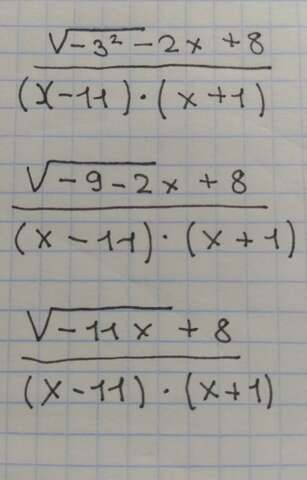 √-3² - 2x + 8
(x-11)·(x+1)
√-9-2x + 8
(x-11)·(x+1)
√-11x + 8
(x-11)·(x+1)